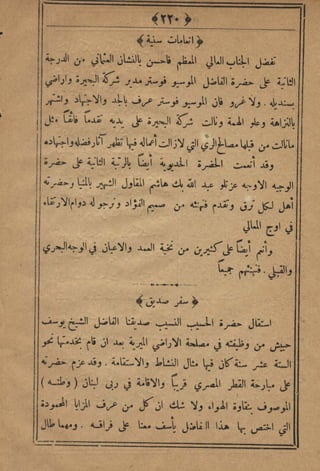 ﴿ ٢٢٠ ﴾
﴿ انعامات سنية ﴾
تفضل الجناب العالي المعظم فاحسن بالنشان العثماني من الدرجة
الثانية على حضرة الفاضل الموسيو فوستر مدير شركة البحيرة واراضي
بسنديله . ولا غرو فان الموسيو فوستر عرف بالجد والاجتهاد واشتهر
بالنزاهة وعلو الهمة ونالت شركة البحيرة على يديه تقدماً فائقاً مثل
مانالت من قبلها مصالح الري التي لازالت أعماله فيها تظهر آثار فضله واجتهاده
وقد أنعمت الحضرة الخديوية أيضاً بالرتبة الثانية على حضرة
الوجيه الاوجه عزتلو عبد الله بك هاشم المقاول الشهير بالمنيا وحضرته
أهل لكل ترق وتقدم فنهنئه من صميم الفؤاد ونرجو له دوام الارتقاء
في اوج المعالي
وأنعم أيضاً على كثيرين من نخبة العمد والاعيان في الوجه البحري
والقبلي . فنهنئهم جميعاً
﴿ سفر صديق ﴾
استقال حضرة الحسيب النسيب صديقنا الفاضل الشيخ يوسف
حبيش من وظيفته في مصلحة الاراضي الميرية بعد ان قام بخدمتها نحو
الستة عشر سنة كان فيها مثال النشاط والاستقامة . وقد عزم حضرته
على مبارحة القطر المصري قريباً والاقامة في ربى لبنان ( وطنه )
الموصوف بنقاوة الهواء ولا شك ان كل من عرف المزايا المحمودة
التي اختص بها هذا الفاضل يأسف معنا على فراقه . ومهما طال